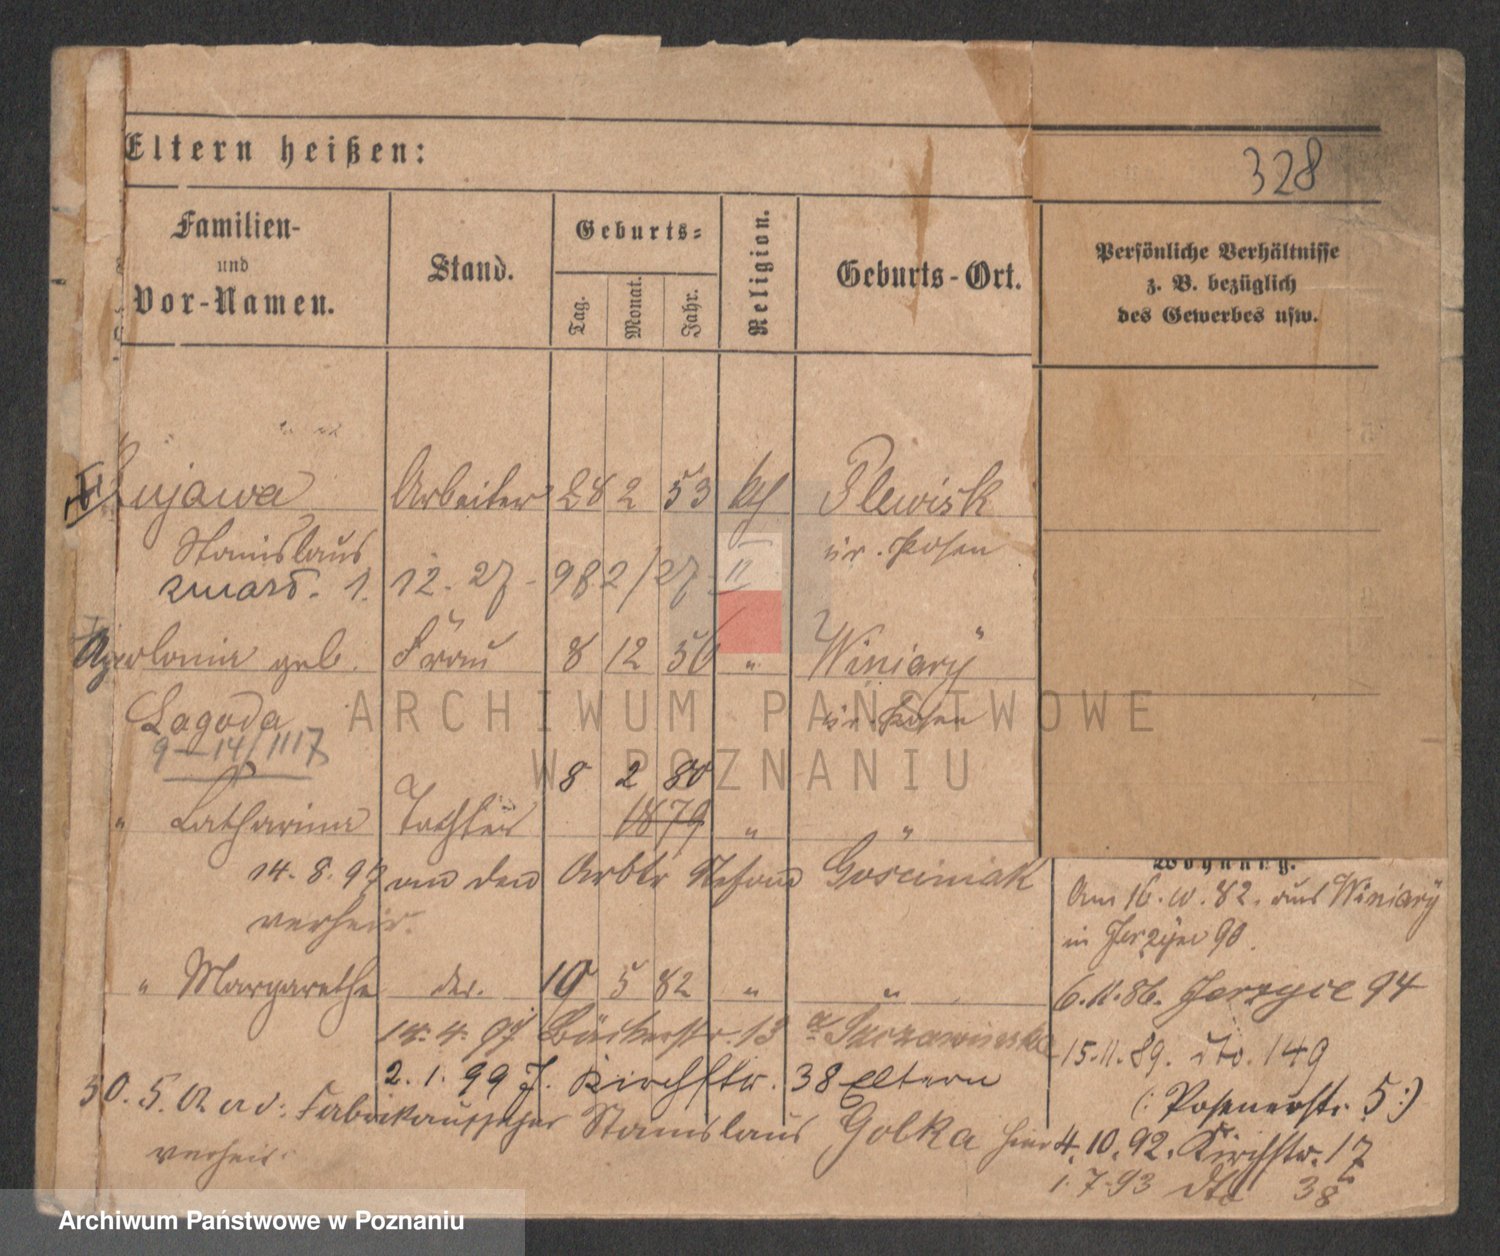 Eltern heißen:
328
Familien-
und
Vor-Namen.
Stand.
Geburts-
Tag.
Monat.
Jahr.
Religion.
Geburts-Ort.
Persönliche Verhältnisse
z. B. bezüglich
des Gewerbes usw.
Kujawa Arbeiter 28 2 53 kth Plewisk
Stanislaus Kr. Posen
zmarł. 1. 12. 27 - 982/27 - II
Apolonia geb. Frau 8 12 56 " Winiary
Lagoda Kr. Posen
9-14/1117
8 2 80
" Catharina Tochter 1879 " "
14. 8. 97 an den Arbtr Stefan Gościniak
verheir.
" Margarethe do. 10 5 82 " "
14. 4. 97 Bäckerstr. 13
2. 1. 99 J. Kirchstr. 38 Eltern
30. 5. 02 a d: Fabrikaufseher Stanislaus Golka hier
verheir.
Wohnung.
Am 16. 10. 82. aus Winiary
in Jerzyce 90.
6. 11. 86. Jerzyce 94
15. 11. 89. dto. 149
(: Posenerstr. 5 :)
4. 10. 92. Kirchstr. 17
1. 7. 93 dto 38
ARCHIWUM PAŃSTWOWE
W POZNANIU
Archiwum Państwowe w Poznaniu